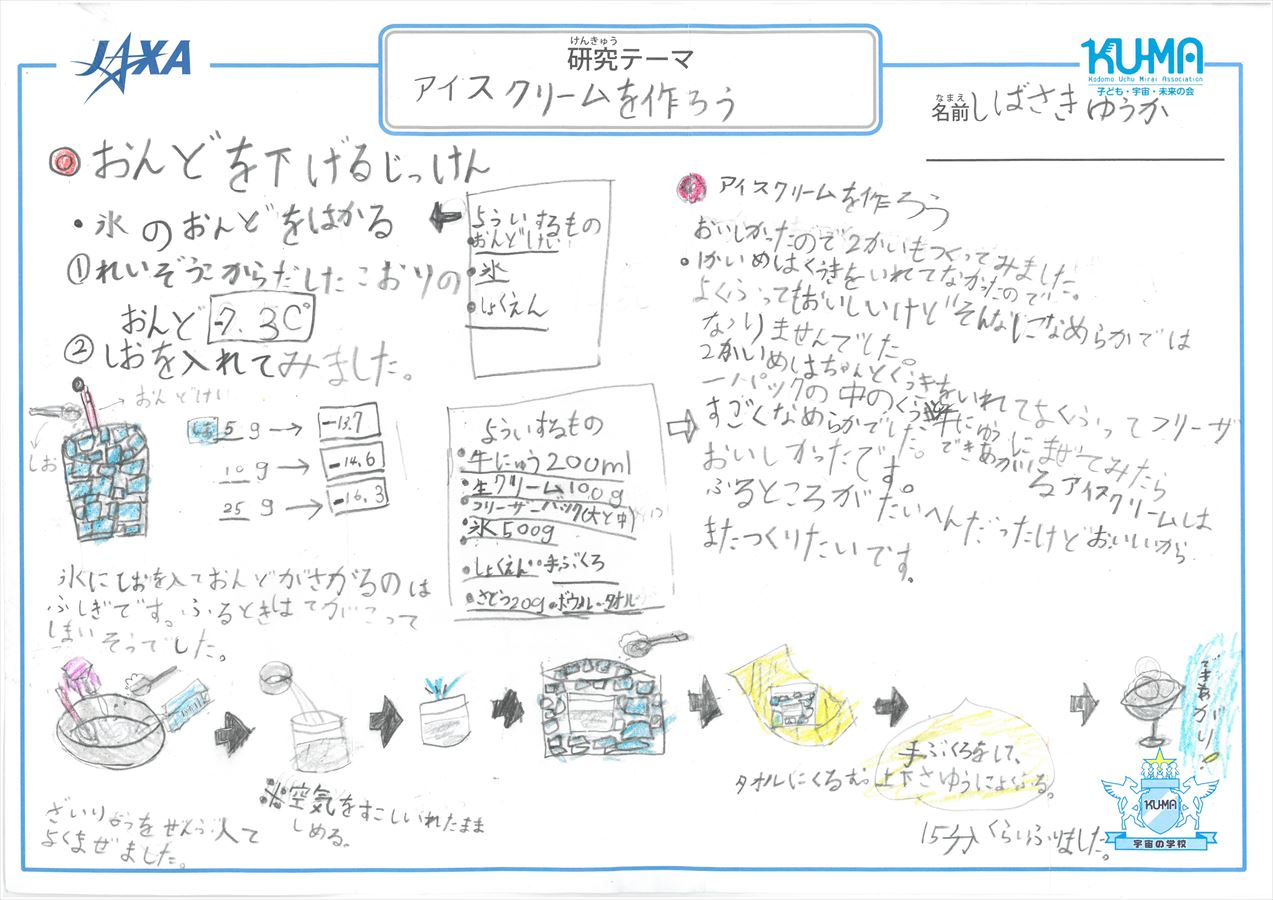 JAXA
けんきゅう
研究テーマ
アイスクリームを作ろう
KU-MA
Kodomo Uchu Mirai Association
子ども・宇宙・未来の会
なまえ
名前 しばさきゆうか
おんどを下げるじっけん
・氷のおんどをはかる
①れいぞうこからだしたこおりの
おんど -7.3C°
②しおを入れてみました。
おんどけい
しお
しお5g→ -13.7
10g→ -14.6
25g→ -16.3
氷にしおを入ておんどがさがるのは
ふしぎです。ふるときはてがこって
しまいそうでした。
よういするもの
・おんどけい
・氷
・しょくえん
よういするもの
・牛にゅう200ml
・生クリーム100g
・フリーザーバック(大と中)
・氷500g
・しょくえん・・手ぶくろ
・さとう20g・ボウル・タオル
アイスクリームを作ろう
おいしかったので2かいもつくってみました。
・1かいめはくうきをいれてなかったので
よくふってもおいしいけどそんなになめらかでは
なりませんでした。
2かいめはちゃんとくうきをいれてよくふってフリーザ
ーパックの中のくう牛にゅうにまぜてみたら
すごくなめらかでした。できあがいるアイスクリームは
おいしかったです。
ふるところがたいへんだったけどおいしいから
またつくりたいです。
ざいりょうをぜんぶ入て
よくまぜました。
※空気をすこしいれたまま
しめる。
タオルにくるむ
手ぶくろをして、
上下さゆうによふる。
15分くらいふりました。
できあがり!
KU-MA
宇宙の学校